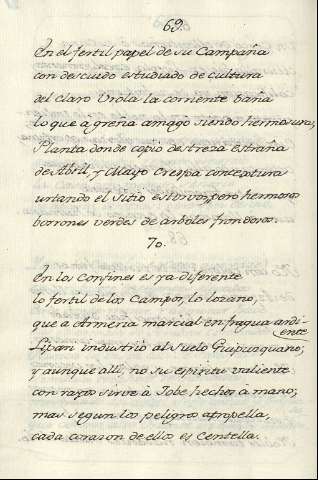 69.
En el fertil papel de su Campaña
con descuido estudiado de cultura
del claro Urola la corriente baña
lo que a greña amagò siendo hermosura,
Planta donde copiò destreza estraña
de Abril, y Mayo Crespa contextura
untando el Sitio estorvos, pero hermosos
borrones verdes de árboles frondosos.
70.
En los confines es ya diferente
lo fertil de los Campos, lo lozano,
que a Armeria marcial en fragua ardiente
Lipari industriò al suelo Guipuzquano;
y aunque alli, no su espiritu valiente
con rayos sirve à Jobe hechos à mano;
mas segun los peligros atropella,
cada corazon de ellos es Centella.